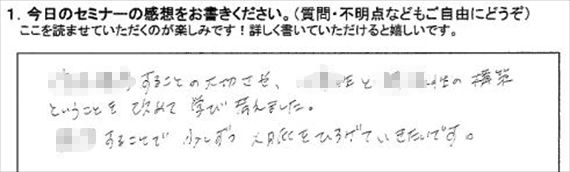 1. 今日のセミナーの感想をお書きください。(質問・不明点などもご自由にどうぞ)
ここを読ませていただくのが楽しみです！詳しく書いていただけると嬉しいです。
することの大切さを、 性と 性の構築
ということを改めて学び きました。
することで少しずつ人脈をひろげていきたいです。